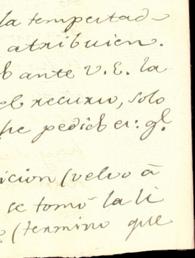 la tempertad
atribuien.
ante V.E. la
el recurso, solo
pedido er: gl.
icion (velvo à
se tomò la li
(termino que